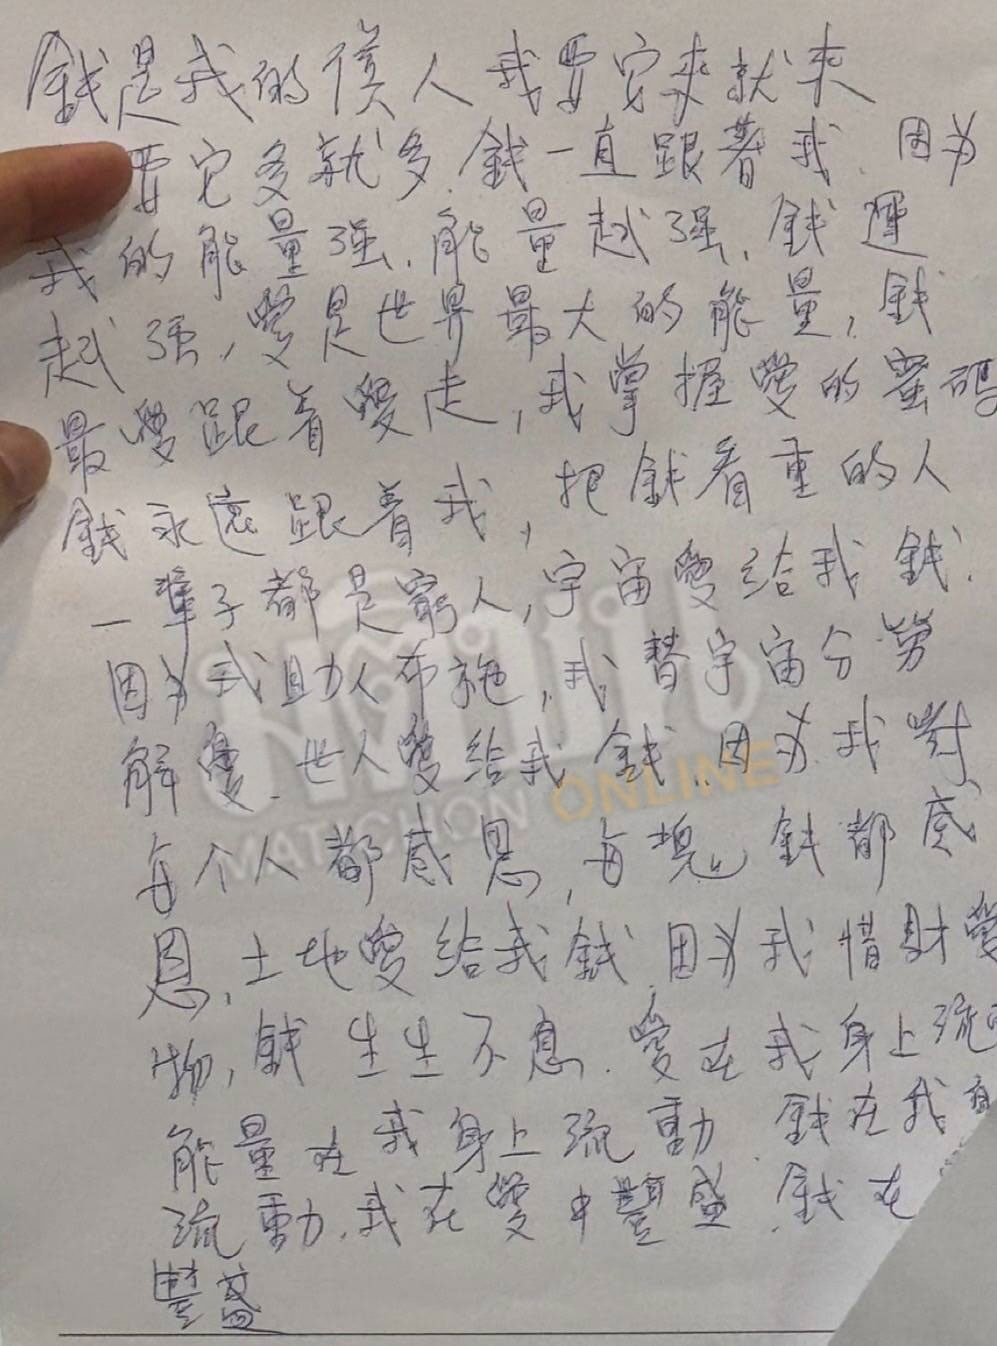 錢是我的僕人 我要它來就來
要它多就多.錢一直跟著我.因为
我的能量强.能量越强.錢運
越强,愛是世界最大的能量,錢
最愛跟着愛走,我掌握愛的蜜碼
錢永遠跟着我,把錢看重的人
一輩子都是窮人,宇宙愛給我錢.
因为我助人布施,我替宇宙分勞
解憂.世人愛給我錢.因为我對
每个人都感恩,每塊錢都感
恩,土地愛給我錢.因为我惜財愛
物,錢生生不息.愛在我身上流
能量在我身上流動.錢在我身
流動.我在愛中豐盛.錢在
豐盛
มติชน
MATICHON ONLINE